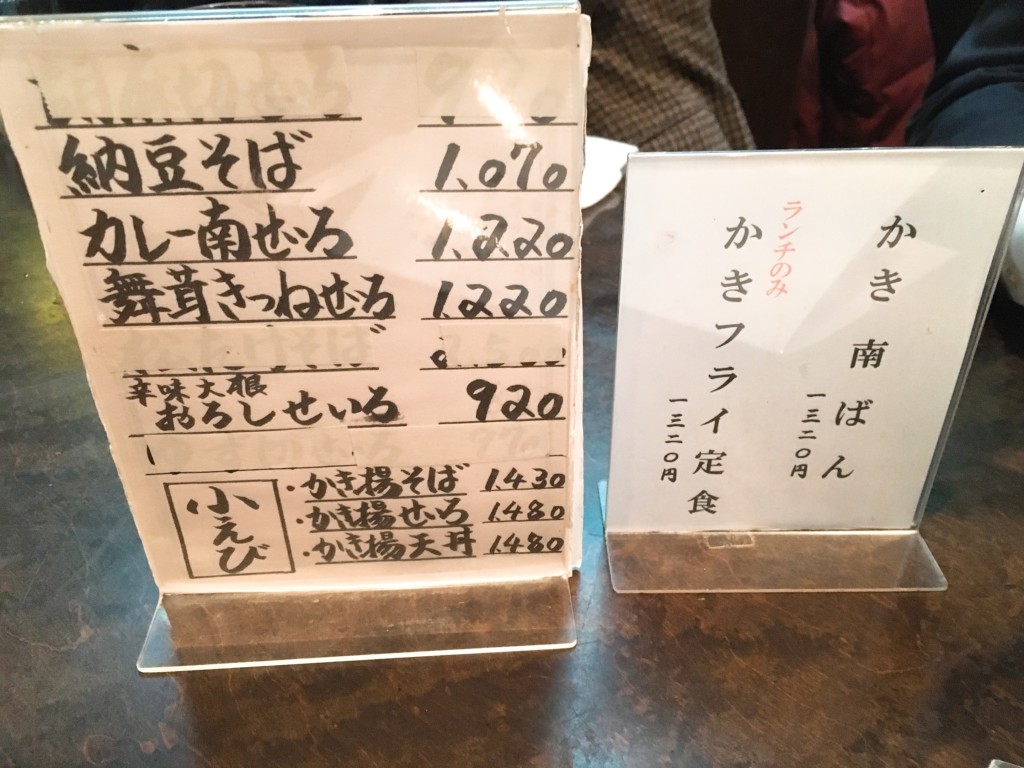 納豆そば 1,070
カレー南せいろ 1,220
舞茸きつねせいろ 1,220
辛味大根
おろしせいろ 920
小えび
・かき揚そば 1,430
・かき揚せいろ 1,480
・かき揚天丼 1,480
かき南ばん
一三二〇円
ランチのみ
かきフライ定食
一三二〇円